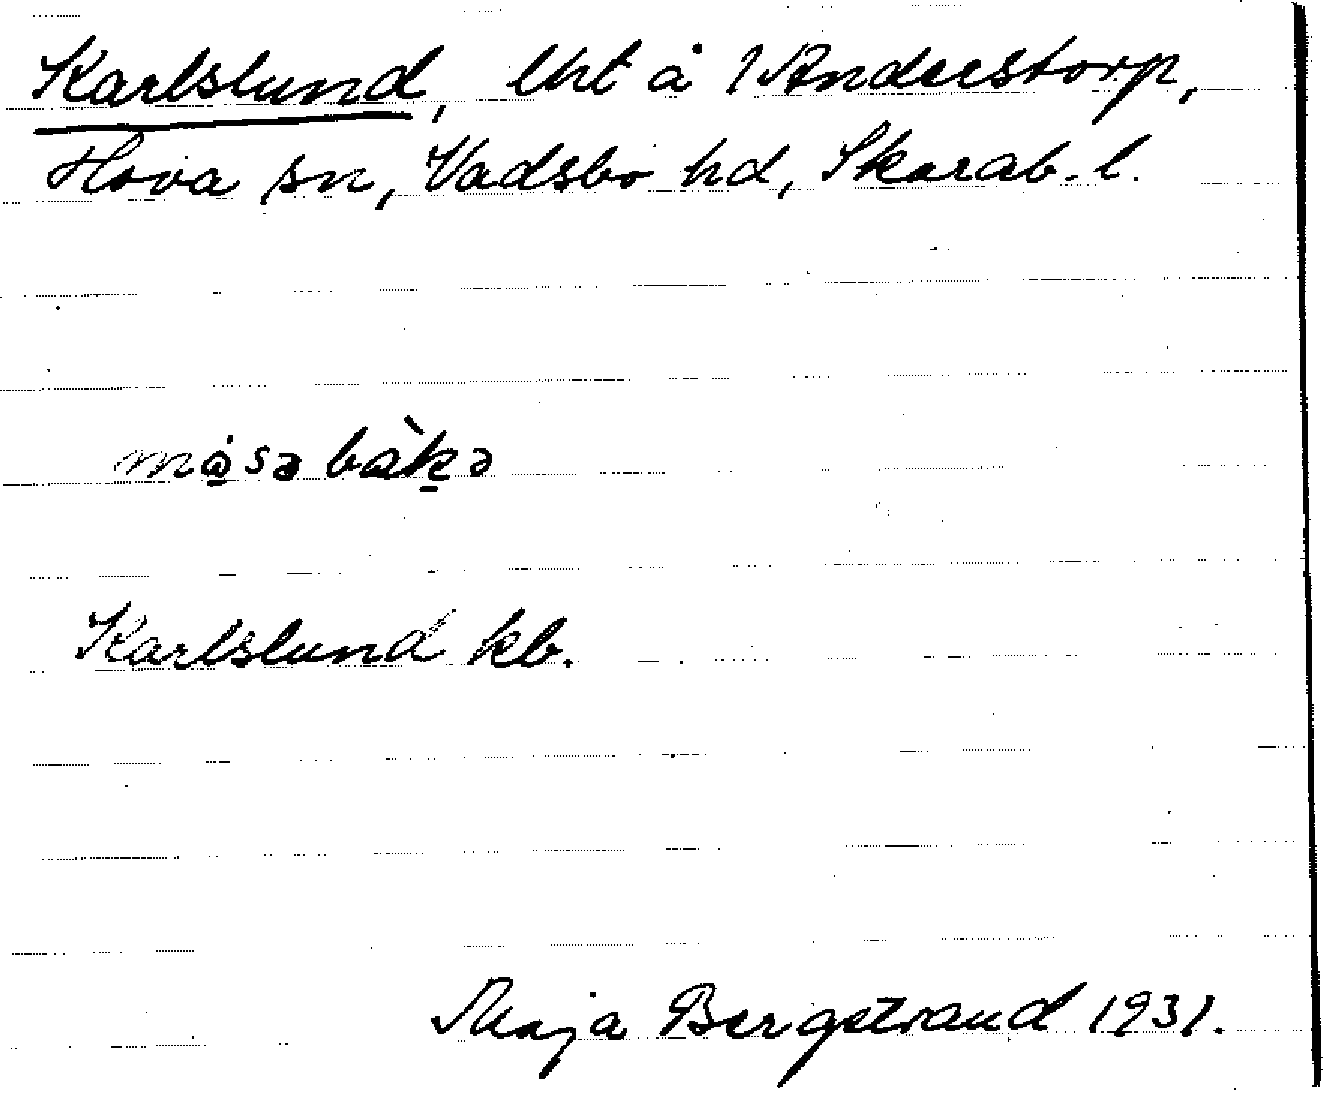 Karlslund, lht å 1 Anderstorp,
Hova sn, Vadsbo hd, Skarab. l.
måsə bàkə
Karlslund kb.
Maja Bergstrand 1931.